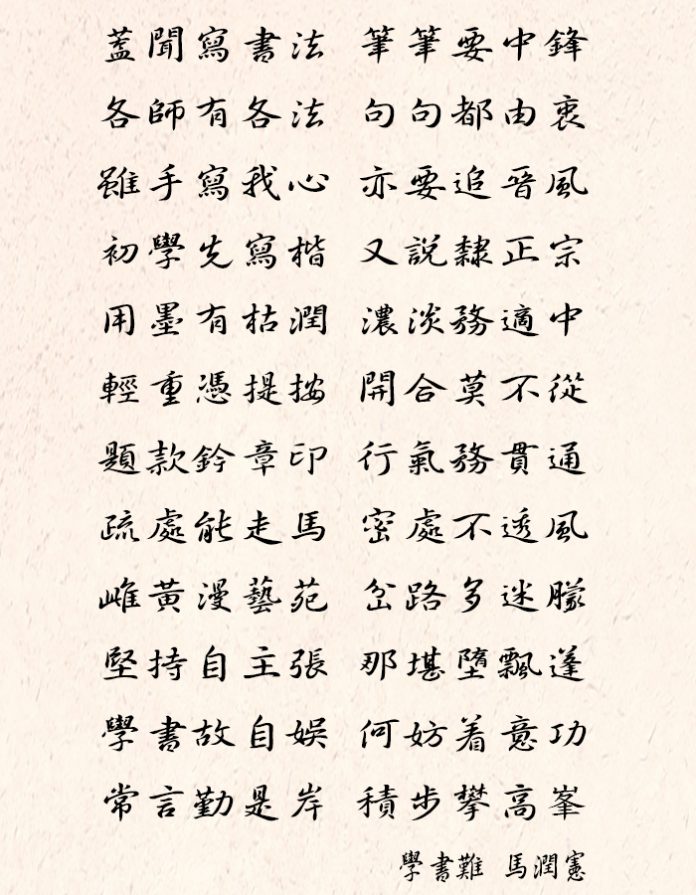 蓋聞寫書法 筆筆要中鋒
各師有各法 句句都由衷
雖手寫我心 亦要追晉風
初學先寫楷 又說隸正宗
用墨有枯潤 濃淡務適中
輕重憑提按 開合莫不從
題款鈐章印 行氣務貫通
疏處能走馬 密處不透風
雌黃漫藝苑 岔路多迷朦
堅持自主張 那堪墮飄蓬
學書故自娛 何妨着意功
常言勤是岸 積步攀高峯
學書難 馬潤憲